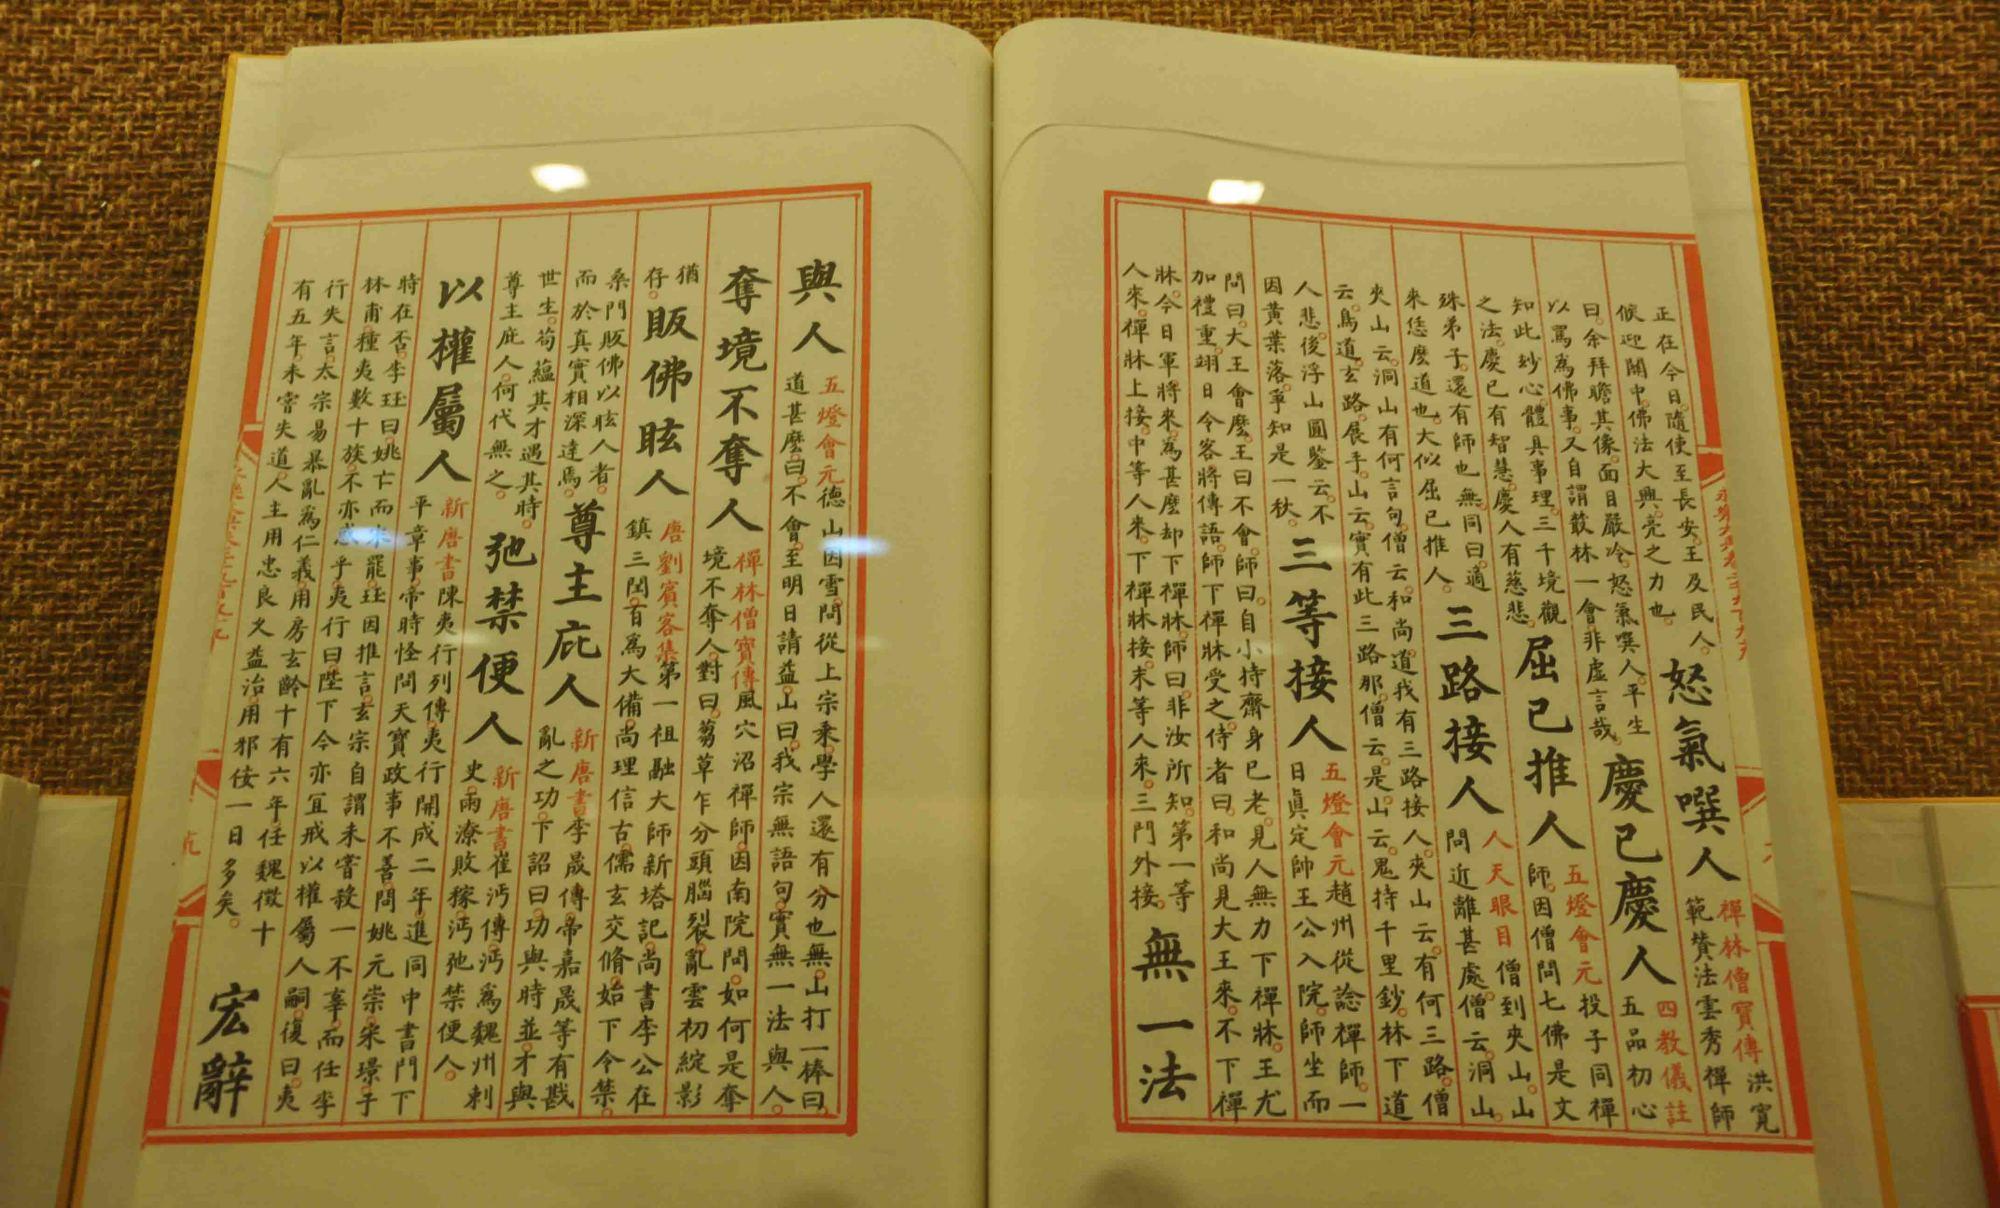 正在今日。隨使至長安。王及民人。
候迎闕中。佛法大興。亮之力也。
怒氣噀人
禪林僧寶傳洪寬
範贊法雲秀禪師
曰。余拜瞻其像。面目嚴冷。怒氣噀人。平生
以罵為佛事。又自謂叢林一會。非虛言哉。
慶已慶人
四教儀註
五品初心
知此妙心。體具事理。三千境觀
之法。慶已有智慧。慶人有慈悲。
屈已推人
五燈會元投子同禪
師。因僧問七佛是文
殊弟子。還有師也無。同曰。適
來恁麼道也。大似屈已推人。
三路接人
人天眼目僧到夾山。山
問近離甚處。僧云。洞山。
夾山云。洞山有何言句。僧云。和尚。道我有三路接人。夾山云。有何三路。僧
云。鳥道。玄路。展手。山云。實有此三路那。僧云。是。山云。鬼持千里鈔。林下道
人悲。後浮山圓鑒云。不
因黃葉落。寧知是一秋。
三等接人
五燈會元趙州從諗禪師。一
日真定帥王公入院。師坐而
問曰。大王會麼。王曰不會。師曰。自小持齋身已老。見人無力下禪牀。王尤
加禮重。翊日令客將傳語。師下禪牀受之。侍者曰。和尚見大王來。不下禪
牀。今日軍將來。為甚麼却下禪牀。師曰。非汝所知。第一等
人來。禪牀上接。中等人來。下禪牀接。末等人來。三門外接。
無一法
與人
五燈會元德山因雪問從上宗乘。學人還有分也無。山打一棒曰。
道甚麼。曰。不會。至明日請益。山曰。我宗無語句。實無一法與人。
奪境不奪人
禪林僧寶傳風穴沼禪師。因南院問。如何是奪
境不奪人。對曰。芻草乍分頭腦裂。亂雲初綻影
猶
存。
販佛眩人
唐劉賓客集第一祖融大師新塔記。尚書李公在
鎮三閏。百為大備。尚理信古。儒玄交脩。始下令禁
桑門販佛以眩人者。
而於真實相深達焉。
尊主庇人
新唐書李晟傳。帝嘉晟等有戡
亂之功。下詔曰。功與時並。才與
世生。苟蘊其才。遇其時。
尊主庇人。何代無之。
弛禁便人
新唐書崔沔傳。沔為魏州刺
史。雨潦敗稼。沔弛禁便人。
以權屬人
新唐書陳夷行列傳。夷行開成二年。進同中書門下
平章事。帝時怪問天寶政事不善。問姚元崇。宋璟。于
時在否。李珏曰。姚亡而宋罷。珏因推言。玄宗自謂未嘗殺一不辜。而任李
林甫。種夷數十族。不亦惑乎。夷行曰。陛下今亦宜戒以權屬人。嗣復曰。夷
行失言。太宗易暴亂為仁義。用房玄齡十有六年。任魏徵十
有五年。未嘗失道。人主用忠良久益治。用邪佞一日多矣。
宏辭